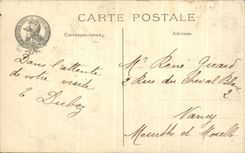 CARTE POSTALE
Correspondance
Dans l'attente
de votre visite
E Duboz
Mr René Girard
2 Rue du Cheval Blanc
2
Nancy
Meurthe et Moselle